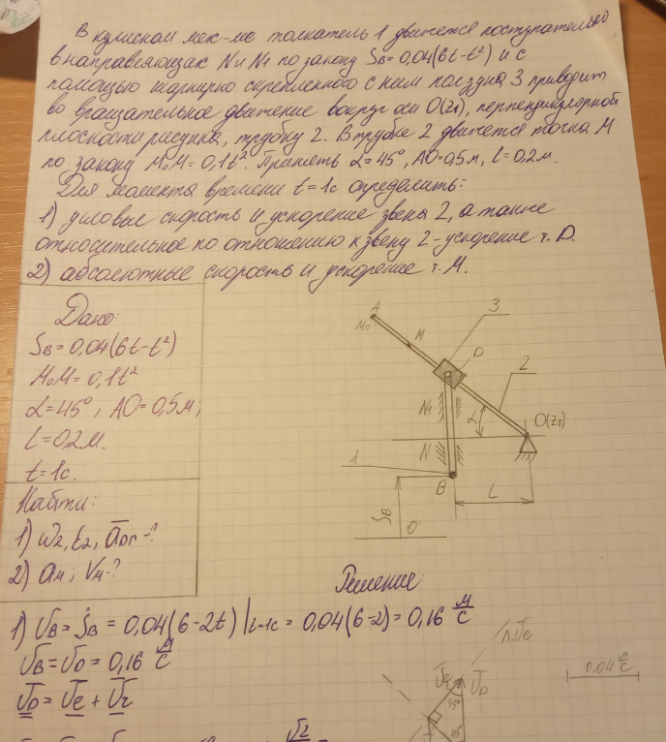 В кулисном мех-ме толкатель 1 движется поступательно
в направляющих N и N₁ по закону S_B=0,04(6t-t²) и с
помощью шарнирно скрепленного с ним ползуна 3 приводит
во вращательное движение вокруг оси O(Z₁), перпендикулярной
плоскости рисунка, трубку 2. В трубке 2 движется точка M
по закону M₀M=0,1t². Принять α=45°, AO=0,5м, l=0,2м.
Для момента времени t=1с определить:
1) угловые скорость и ускорение звена 2, а также
относительное по отношению к звену 2 - ускорение т. D.
2) абсолютные скорость и ускорение т. M.
Дано:
S_B=0,04(6t-t²)
M₀M=0,1t²
α=45°, AO=0,5м;
l=0,2м.
t=1с.
Найти:
1) ω₂, ε₂, a̅_Dr-?
2) a_M; V_M-?
A
M₀
M
3
D
2
N₁
α
O(Z₁)
N
1
B
L
S_B
O'
Решение:
1) V_B=Ṡ_B = 0,04(6-2t)|t=1с = 0,04(6-2)=0,16 м/с
V_B=V_D=0,16 м/с
V̅_D=V̅_e+V̅_r
Л.V̅e
0.04 м/с
V̅_D
45°
45°